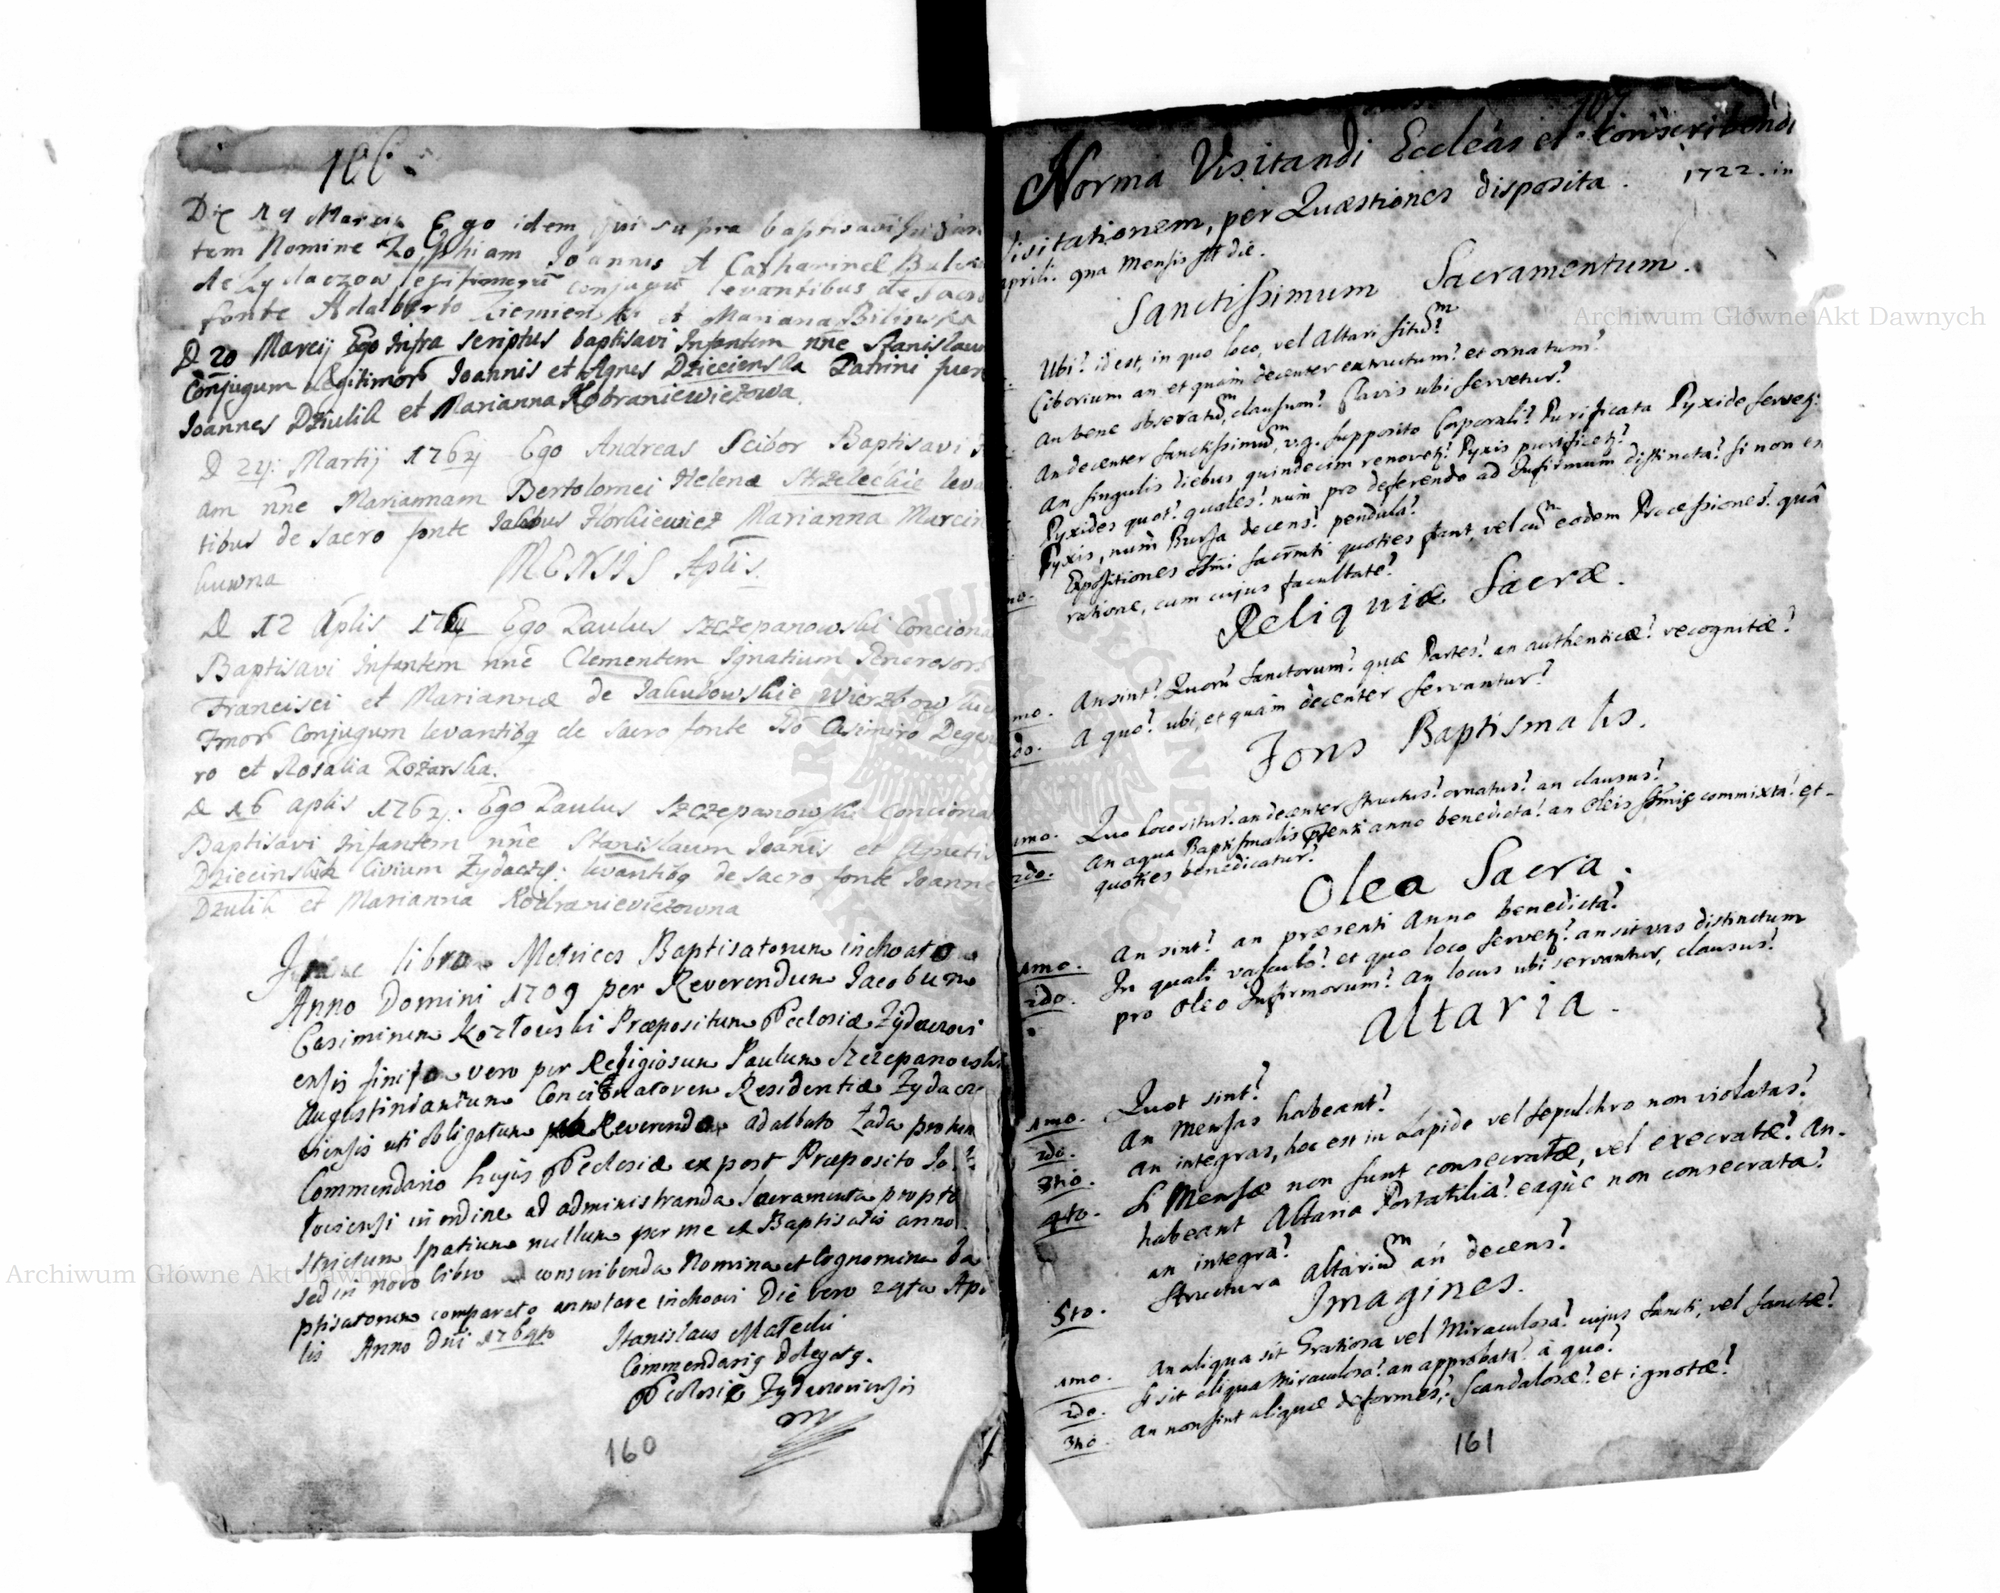 106.
Die 19 Marcii Ego idem qui supra baptisavi
tem Nomine Zophiam Joannis et Catharinae
de Zydaczow legitimorū conjugū levantibus de Sacro
fonte Adalberto et Mariana Bilinska
D 20 Marcij Ego Infra scriptus baptisavi Infantem nn̄e Stanislaum
Conjugum legitimor̄ Joannis et Agnes Dziecienska Patrini fuer
Joannes Dziulik et Marianna Kobraniewiezowa.
D 24: Martij 1764 Ego Andreas Scibor Baptisavi
am nn̄e Mariannam Bertolomei Helenæ Strzeleckie leva
tibus de sacro fonte Jakobus Marianna Marcin
kuwna
MENSIS Aplis.
D 12 Aplis 1764 Ego Paulus Szczepanowski Conciona
Baptisavi Infantem nn̄e Clementem Ignatium Generosor̄
Francisci et Mariannæ de Jakubowskie Wierzbowskie
Conjugum levantibq de sacro fonte Casimiro
ro et Rosalia Rozarska.
D 16 aplis 1764. Ego Paulus Szczepanowski Conciona
Baptisavi Infantem nn̄e Stanislaum Joanis et Agnetis
Dziecinskich Civium Zydacz: levantibq de sacro fonte Joanne
Dzulik et Marianna Kobranieviezowna
libro Metrices Baptisatorum inchoato
Anno Domini 1709 per Reverendum Jacobum
Casimirum Kozlouski Præpositum Ecclesiæ Zydaczovi
ensis finito vero per Religiosum Paulum Szczepanowski
Augustinianum Concionatorem Residentiæ Zydaczo
viensis uti obligatum Reverendo Adalbato Zada protun
Commendario hujus Ecclesiæ ex post Præposito
toviensi in ordine ad administranda Sacramenta propter
strictum spatium nullum per me ex Baptisatis anno
sed in novo libro conscribenda Nomina et Cognomina ba
ptisatorum comparato annotare inchoavi Die vero 24ta Apri
lis Anno Dn̄i 1764to
Stanislaus Matecki
Commendariq Delegatq.
Ecclesiæ Zydaczoviensis
160
107
Norma Visitandi Eccleās et conscribendi
Visitationem, per Quæstiones disposita. 1722. in
aprili. qna Mensis die.
Sanctissimum Sacramentum.
Ubi? id est, in quo loco, vel Altari situm?
Ciborium an et quàm decenter extructum? et ornatum?
An bene obseratum, clausum? Clavis ubi servetur?
An decenter Sanctissimum, v.g. supposito Corporali? Purificata Pyxide servetq:
An singulis diebus quindecim renovetq? Pyxis purificetq?
Pyxides quot? quales? num pro deferendo ad Infirmum distincta? si non est
Pyxis, num Bursa decens? pendula?
Expositiones SSmi Sacrm̄ti quoties fiant, vel cum eodem Processiones? quâ
ratione, cum cujus facultate?
Reliquiæ Sacræ.
1mo. An sint? Quorū Sanctorum? quæ Partes? an authenticæ? recognitæ?
2do. A quo? ubi, et quàm decenter servantur?
Fons Baptismalis.
1mo. Quo loco situs? an decenter structus? ornatus? an clausus?
2do. An aqua Baptismalis pn̄enti anno benedicta? an Oleis commixta? et
quoties benedicatur?
Olea Sacra.
1mo. An sint? an præsenti Anno benedicta?
2do. In quali vasculo? et quo loco servetq? an sit vas distinctum
pro Oleo Infirmorum? An locus ubi servantur, clausus?
Altaria.
1mo. Quot sint?
2do. An Mensas habeant?
3tio. An integras, hoc est in Lapide vel Sepulchro non violatas?
4to. Si Mensæ non sunt consecratæ, vel execratæ? An
habeant Altaria Portatilia? eaqùe non consecrata?
an integra?
5to. Structura Altarium an decens?
Imagines.
1mo. An aliqua sit Gratiosa vel Miraculosa? cujus Sancti, vel Sanctæ?
2do. Si sit aliqua Miraculosa? an approbata? à quo?
3tio. An non sint aliquæ deformes, Scandalosæ? et ignotæ?
161
Archiwum Główne Akt Dawnych
Archiwum Główne Akt Dawnych